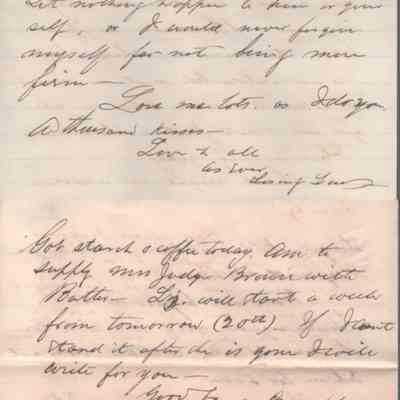 Let nothing happen to him or your
self, or I would never forgive
myself for not being more
firm—
Love me lots. as I do you.
A thousand kisses—
Love to all
as ever
Loving
Got starch & coffee today. Am to
supply Mrs Judge Brown with
Butter— Liz. will start a week
from tomorrow (20th). If I can't
stand it after she is gone I will
write for you—
Good